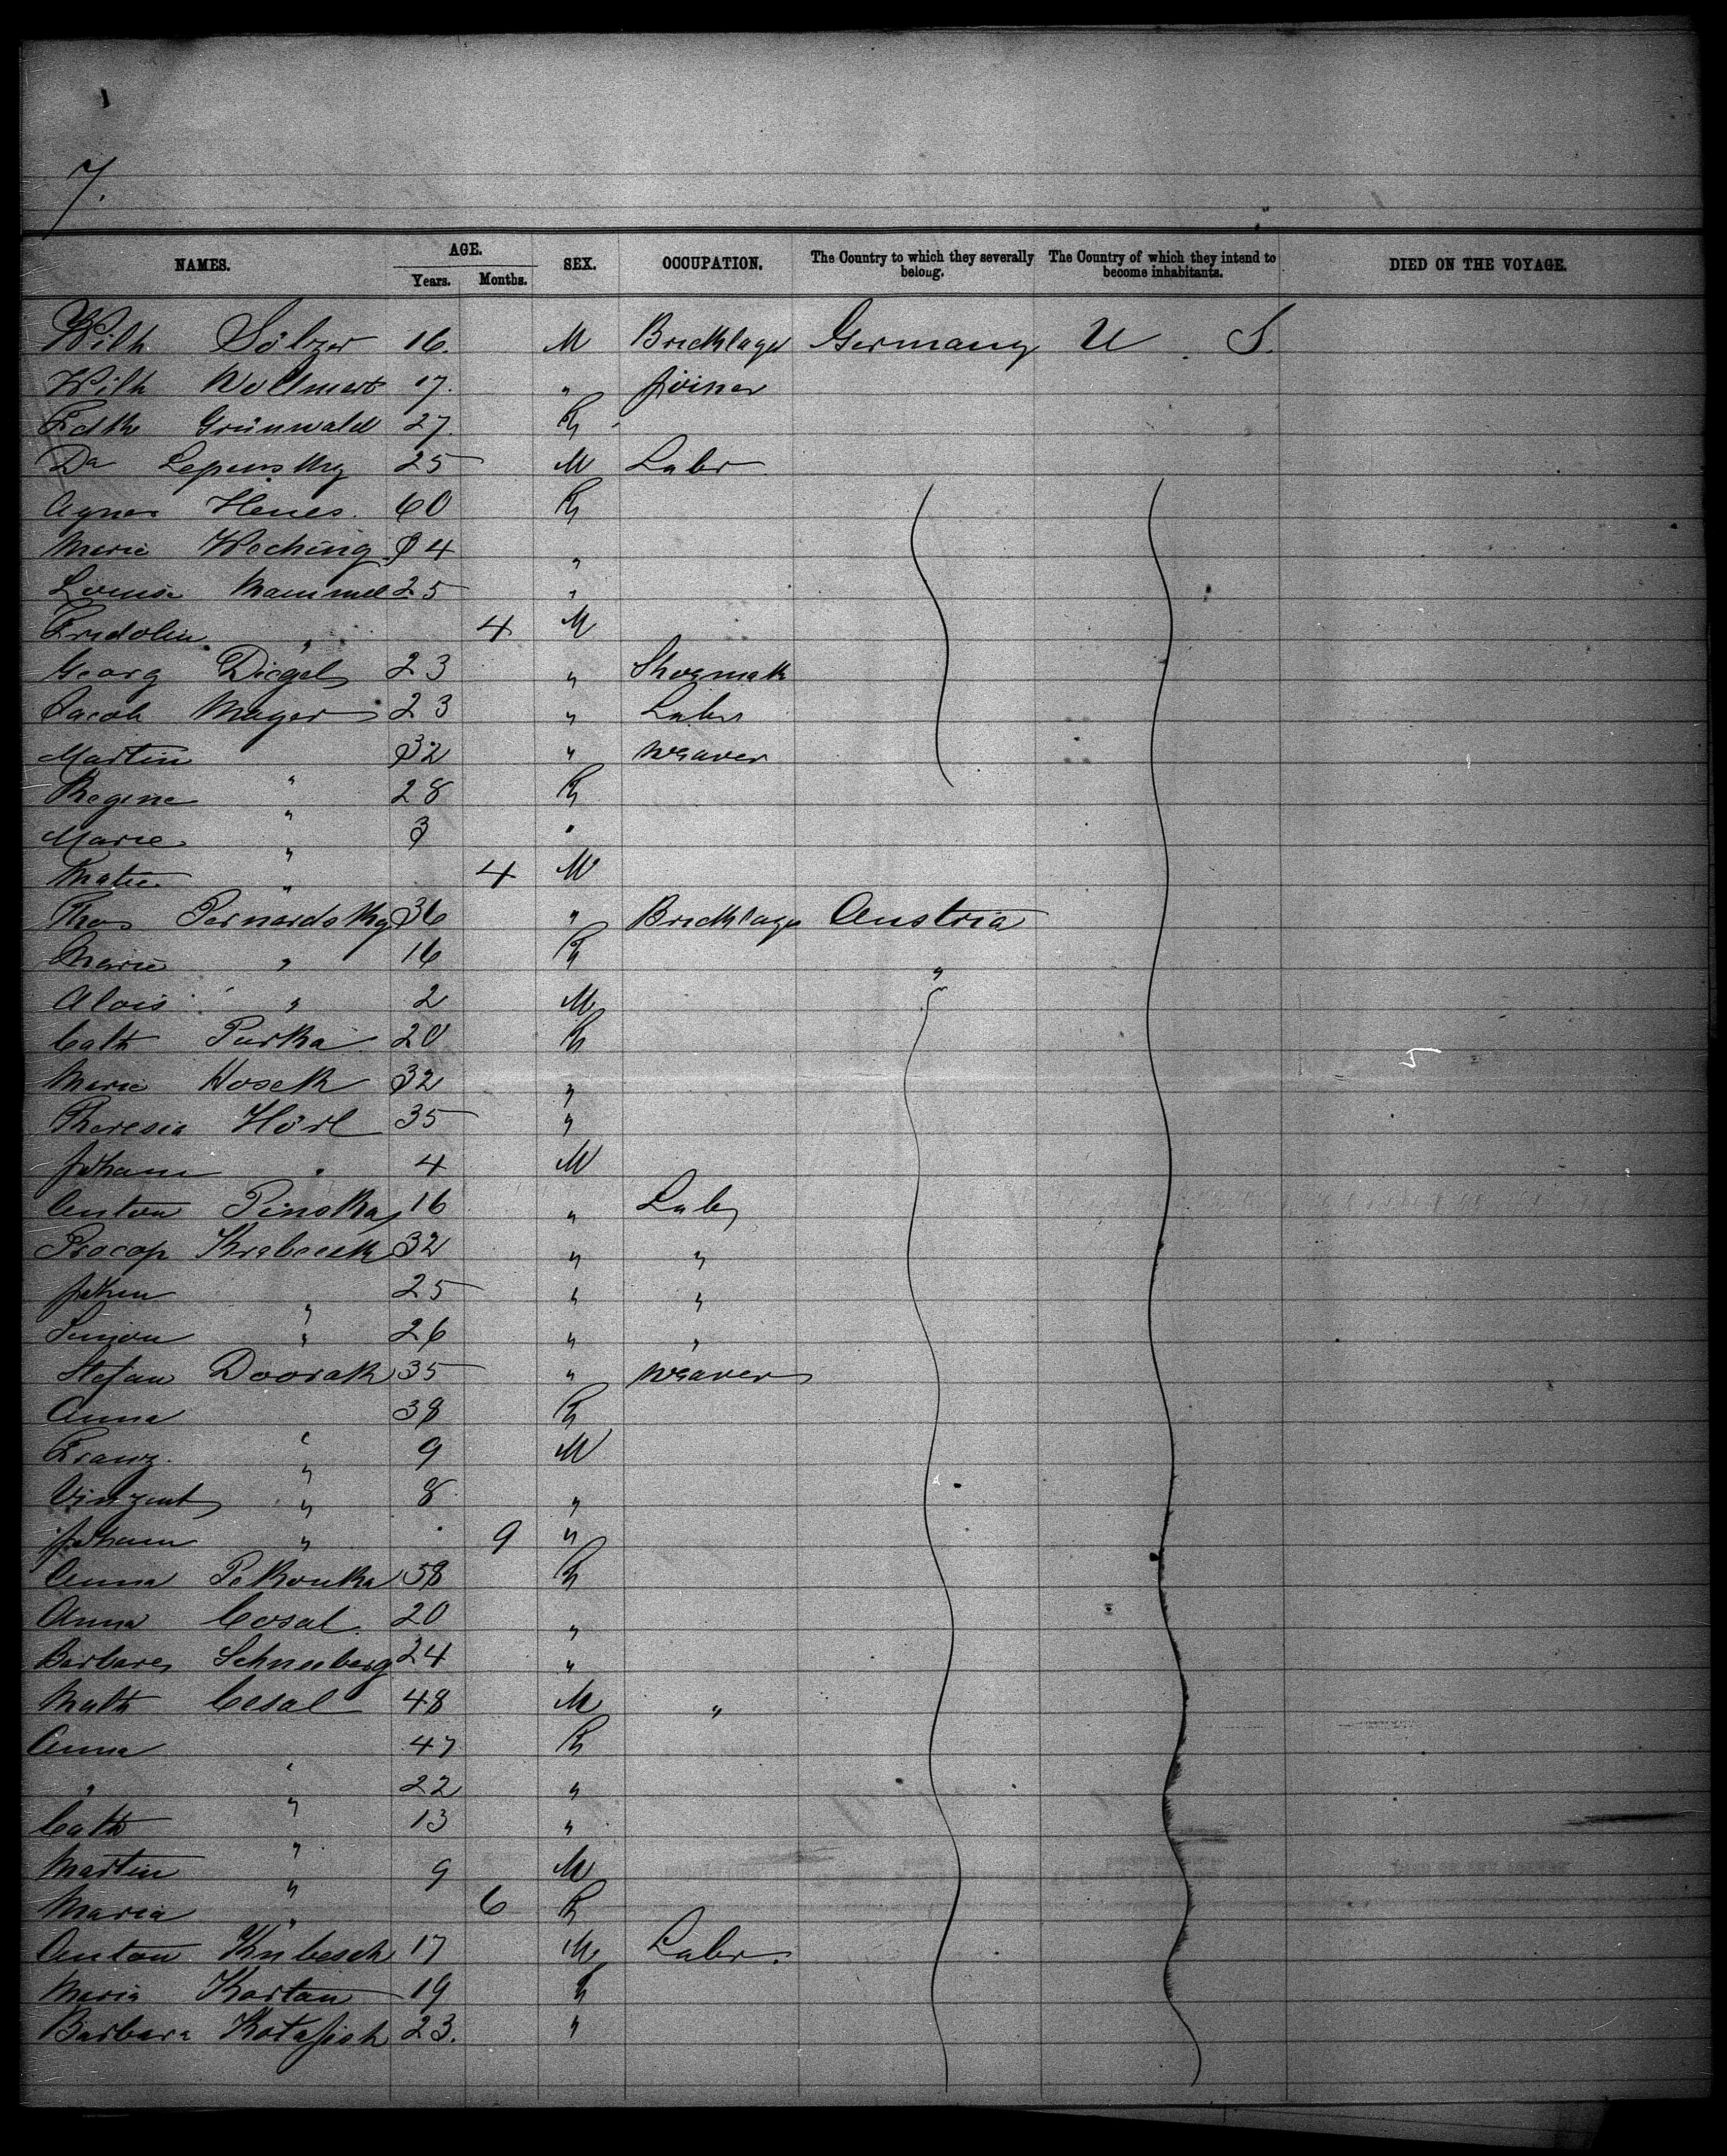 7.
NAMES. AGE. Years. Months. SEX. OCCUPATION. The Country to which they severally belong. The Country of which they intend to become inhabitants. DIED ON THE VOYAGE.
Wilh Sölzer 16. M Bricklayer Germany U. S.
Wilh Vollmert 17. " joiner
Grünwald 27. F
Lepinsky 25 M Labr
Agnes Henes. 60 F
Marie Weching 34 "
Louise Mammel 25 "
Fridolin " 4 M
Georg Diegel 23 " Shoemak
Jacob Mayer 23 " Labr
Martin " 32 " Weaver
Regine " 28 F
Marie " 3 "
" 4 M
Thos Pernardsky 36 " Bricklaye Austria
Marie " 16 F "
Alois " 2 M
Cath Purka 20 F
Marie Hosek 32 "
Theresia Hörl 35 "
Johann " 4 M
Anton Pinska 16 " Lab
Procop 32 " "
Johan " 25 " "
Simon " 26 " "
Stefan Dvorak 35 " Weaver
Anna " 38 F
Franz. " 9 M
Vinzent " 8 "
Johann " 9 "
Anna Pokonka 58 F
Anna Cesal. 20 "
Barbara Schneeberg 24 "
Math Cesal 48 M "
Anna " 47 F
" " 22 "
Cath " 13 "
Martin " 9 M
Maria " 6 F
Anton Kubesch 17 M Labr.
Maria Kartan 19 F
Barbara 23. "